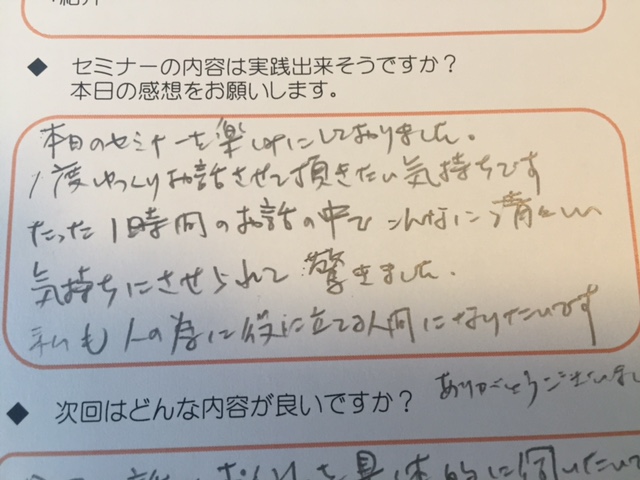 ◆ セミナーの内容は実践出来そうですか？
本日の感想をお願いします。
本日のセミナーを楽しみにしておりました。
1度ゆっくりお話させて頂きたい気持ちです
たった1時間のお話の中でこんなにも清々しい
気持ちにさせられて驚きました。
私も人の為に役に立てる人間になりたいです
ありがとうございまし
◆ 次回はどんな内容が良いですか？
具体的に伺いたいで